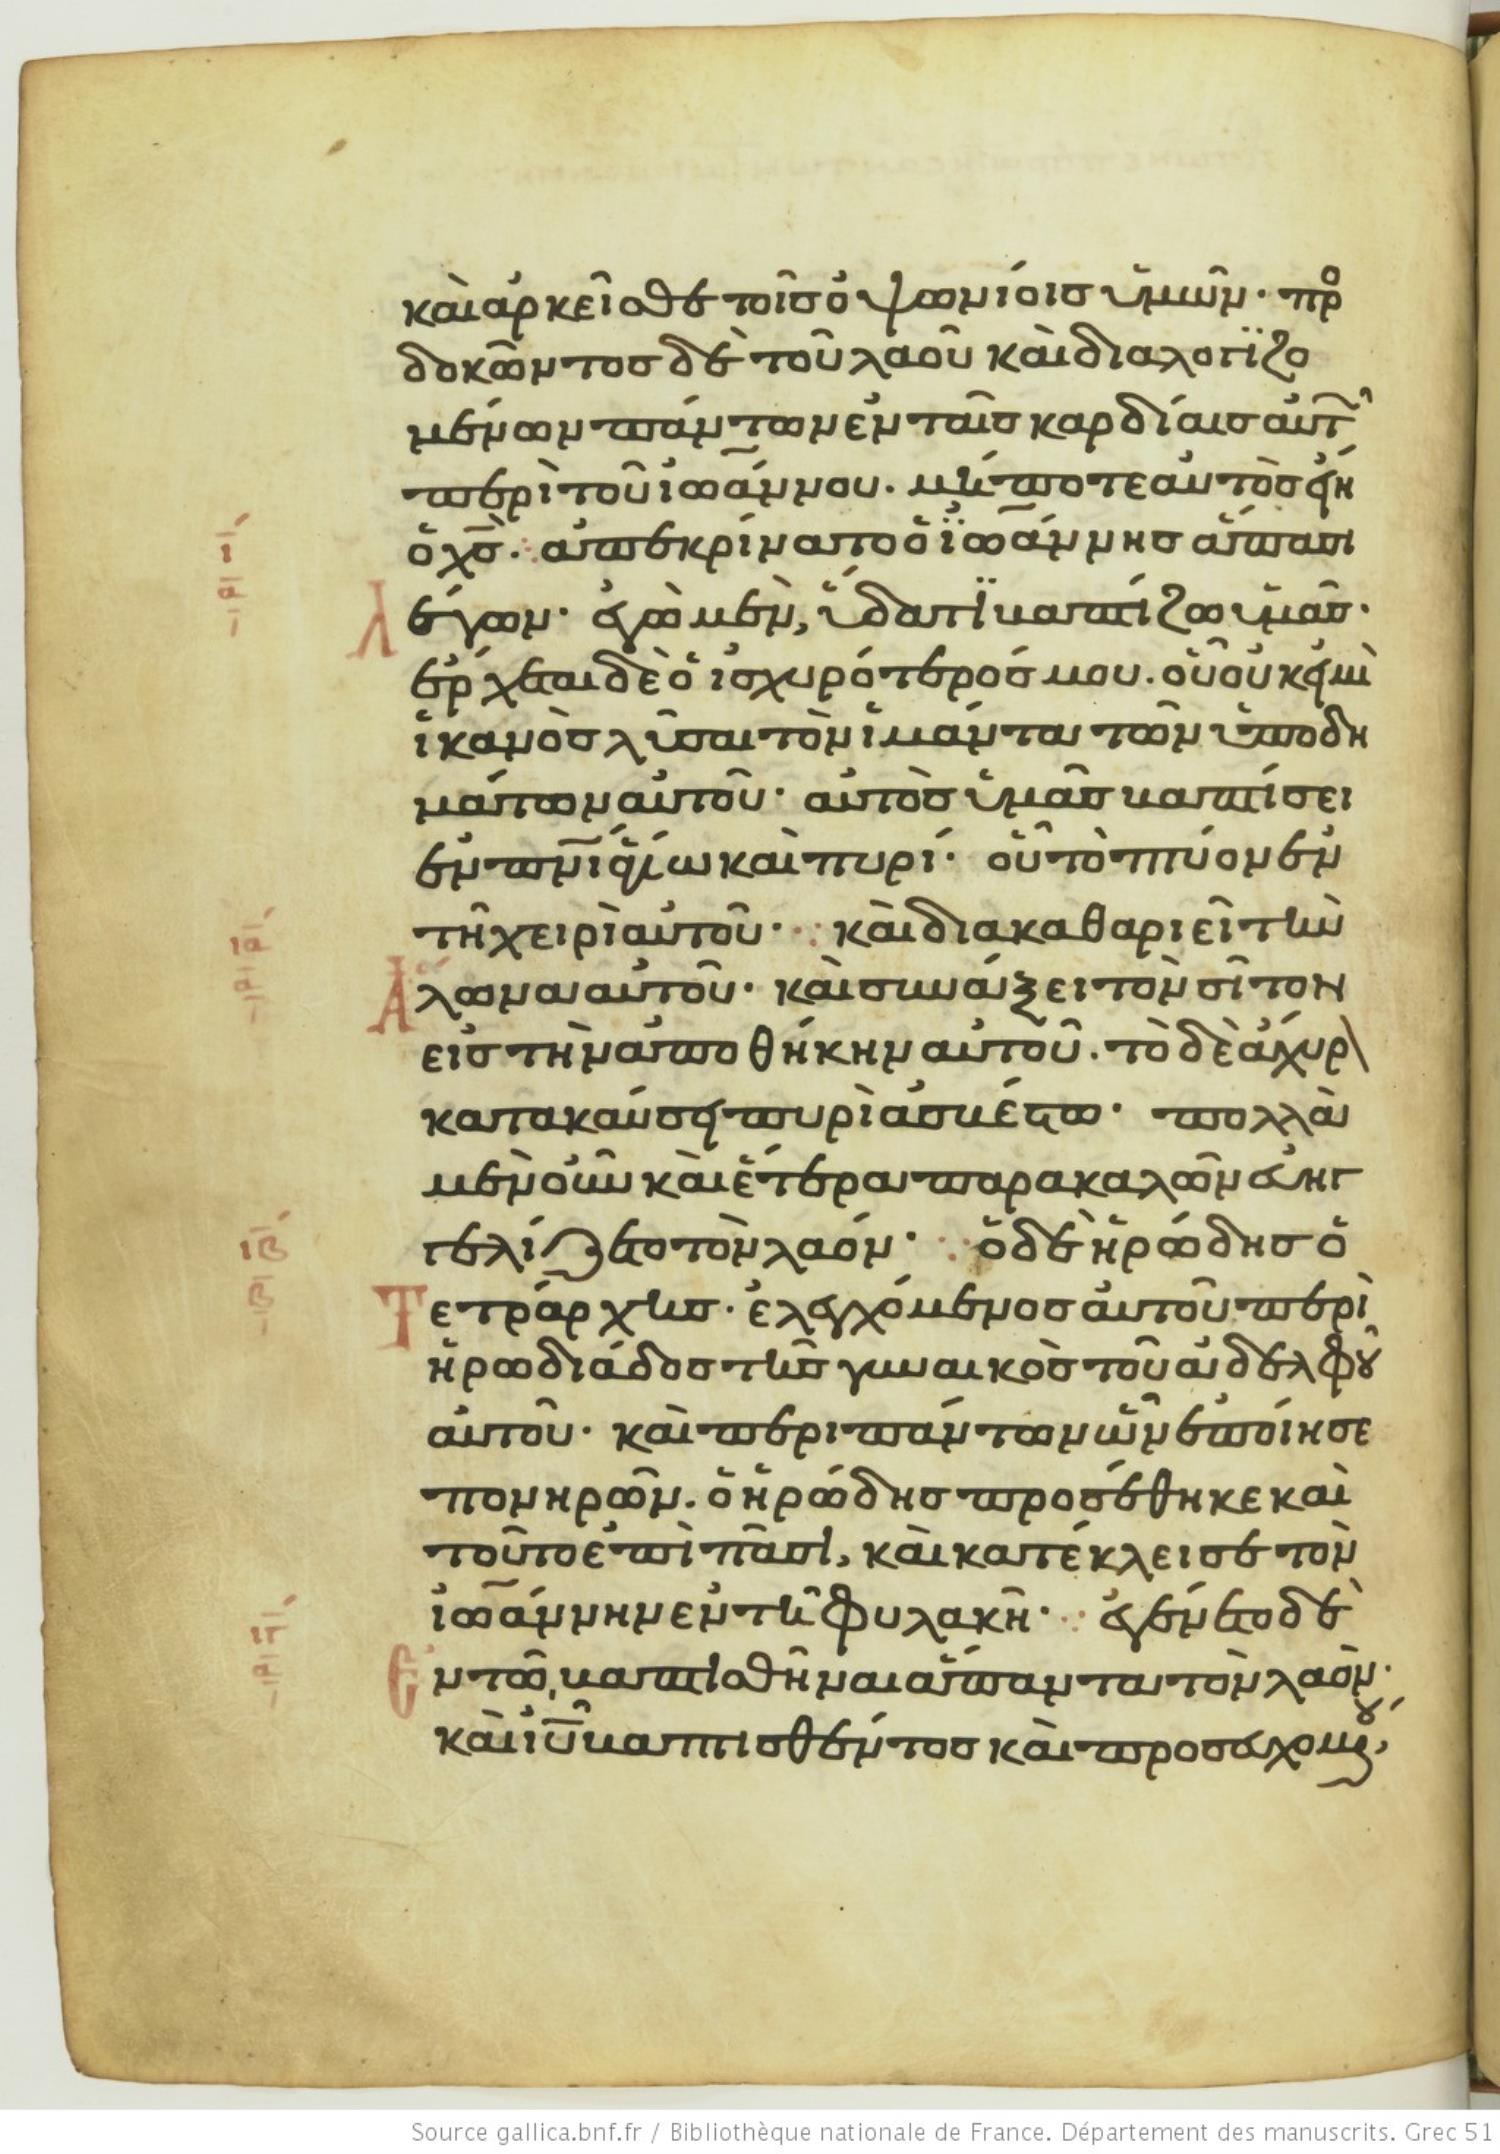 καὶ ἀρκεῖσθε τοῖς ὀψωνίοις ὑμῶν· προ
δοκῶντος δὲ τοῦ λαοῦ καὶ διαλογϊζο
μένων πάντων ἐν ταῖς καρδίαις αὐτ
περὶ τοῦ ἰωάννου. μήποτε αὐτὸς εἴη
ὁ χς. ἀπεκρίνατο ὁ ἰωάννης ἅπασι
λέγων· ἐγὼ μὲν, ὕδατϊ βαπτίζω ὑμᾶς·
ἔρχεται δὲ ὁ ἰσχυρότερός μου. οὗ οὐκ εἰμὶ
ἱκανὸς λῦσαι τὸν ἱμάντα τῶν ὑποδη
μάτων αὐτοῦ· αὐτὸς ὑμᾶς βαπτίσει
ἐν πνι ἁγίω καὶ πυρί· οὗ τὸ πτύον ἐν
τῆ χειρὶ αὐτοῦ· καὶ διακαθαριεῖ τὴν
ἅλωνα αὐτοῦ· καὶ συνάξει τὸν σῖτον
εἰς τὴν ἀποθήκην αὐτοῦ. τὸ δὲ ἄχυρ
κατακαύσει πυρὶ ἀσβέστω· πολλὰ
μὲν οὖν καὶ ἕτερα παρακαλῶν εὐηγ
γελίζετο τὸν λαόν· ὁ δὲ ἡρώδης ὁ
τετράρχης. ἐλεγχόμενος ὑπ αὐτοῦ περὶ
ἡρωδιάδος τῆς γυναικὸς τοῦ ἀδελφοῦ
αὐτοῦ· καὶ περι πάντων ὧν ἐποίησε
πονηρῶν. ὁ ἡρώδης προσέθηκε καὶ
τοῦτο ἐπὶ πᾶσι, καὶ κατέκλεισε τὸν
ἰωάννην ἐν τῆ φυλακῆ· ἐγένετο δὲ
ἐν τῶ, βαπτισθῆναι ἅπαντα τὸν λαόν·
καὶ ιυ βαπτισθέντος καὶ προσευχομένου,
ι
ια
ιβ
ιγ